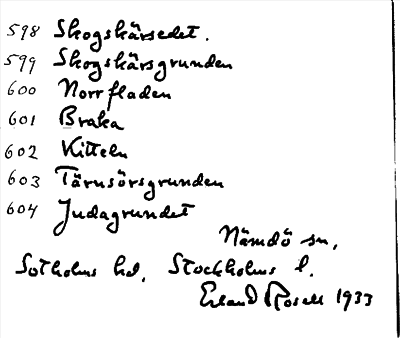 598 Skogskärsedet.
599 Skogskärsgrunden
600 Norrfladen
601 Braka
602 Kitteln
603 Tärnsörsgrunden
604 Judagrundet
Nämdö sn,
Sotholms hd, Stockholms l.
Erland Rosell 1933